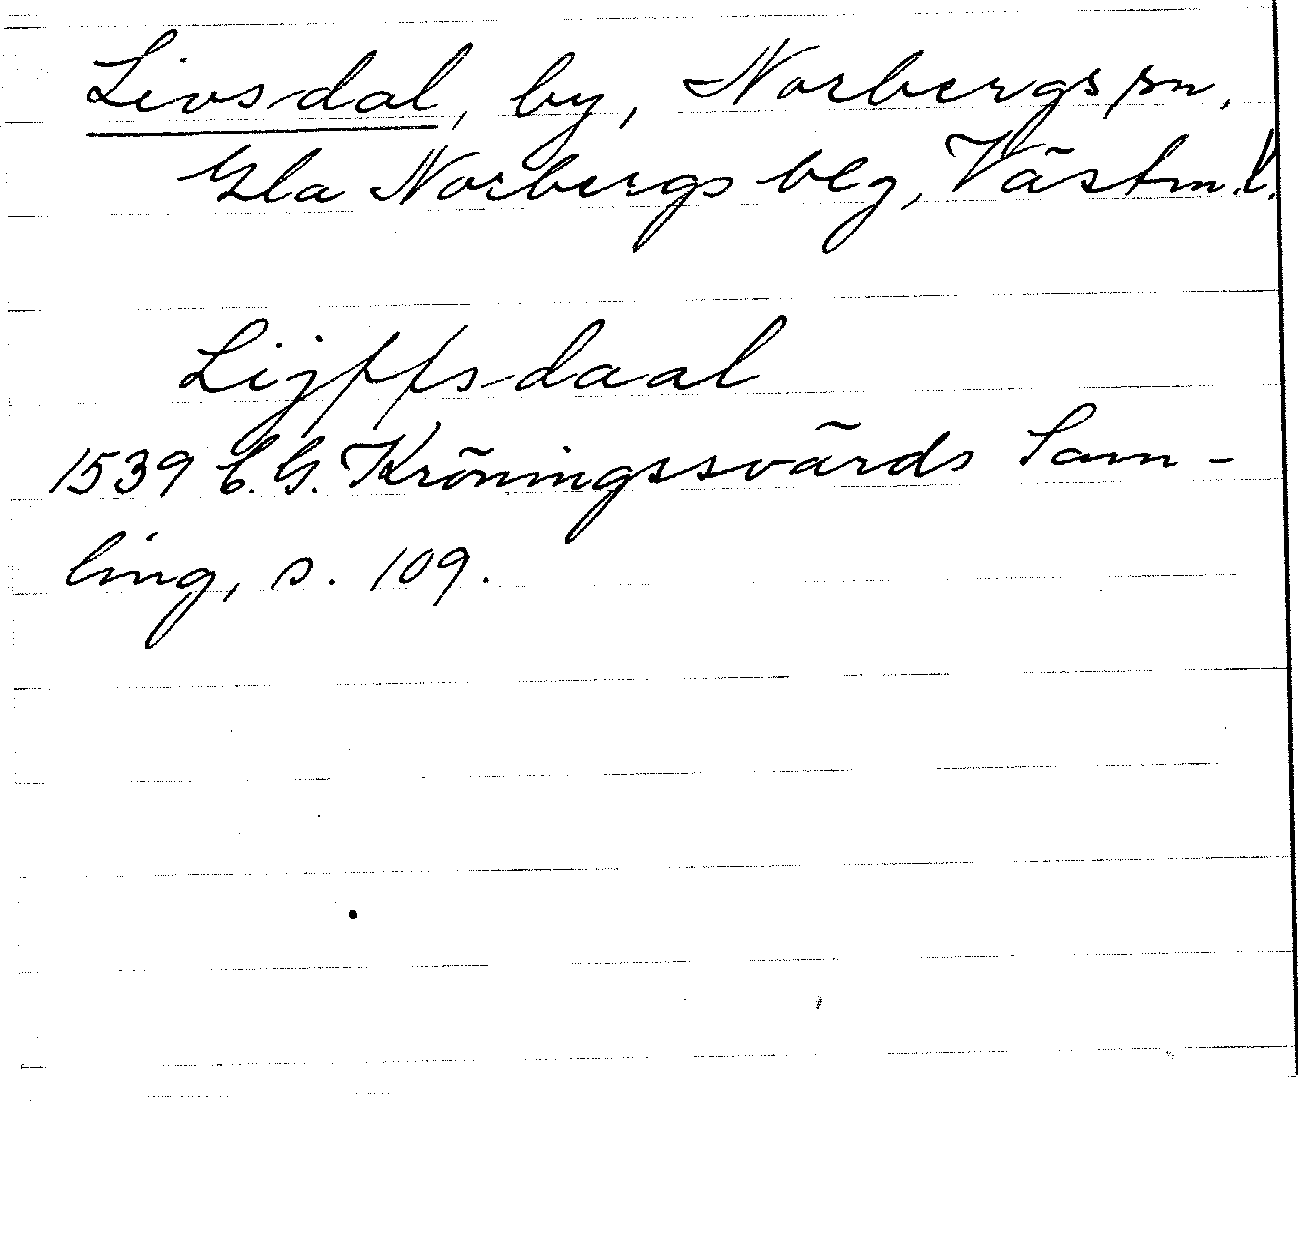 Livsdal, by, Norbergs sn,
Gla Norbergs blg, Västm.l.
Lijffsdaal
1539 C.G. Kröningssvärds Sam-
ling, s. 109.